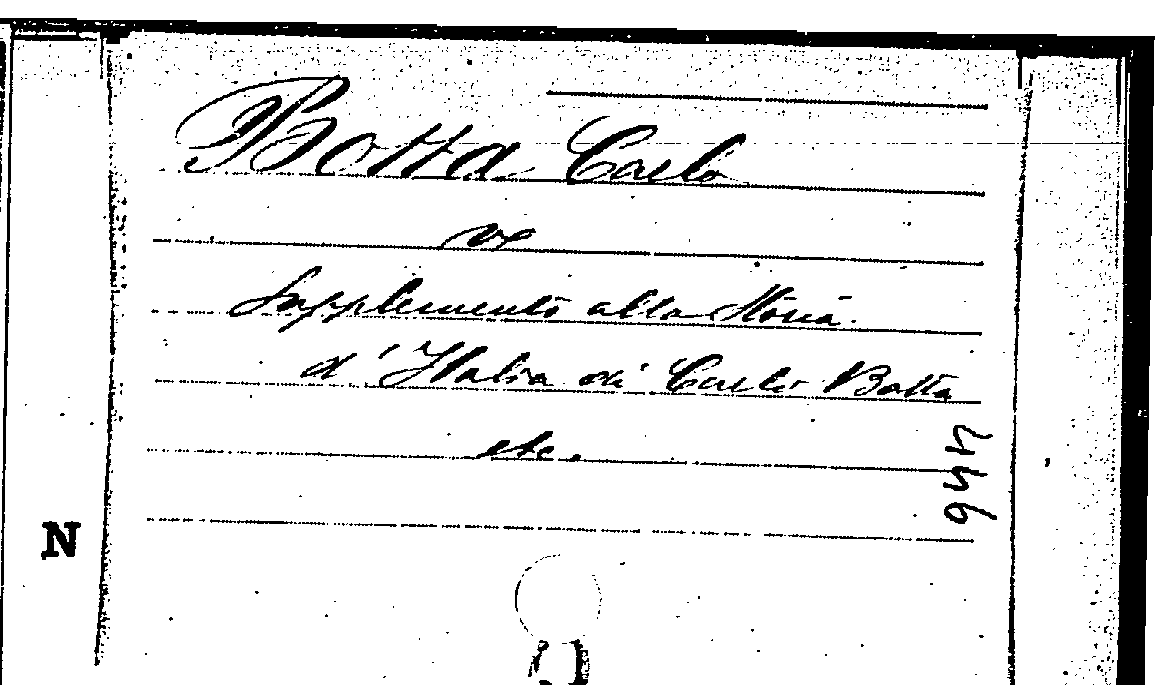 Botta Carlo
V
Supplemento alla Storia
d'Italia di Carlo Botta
etc.
N